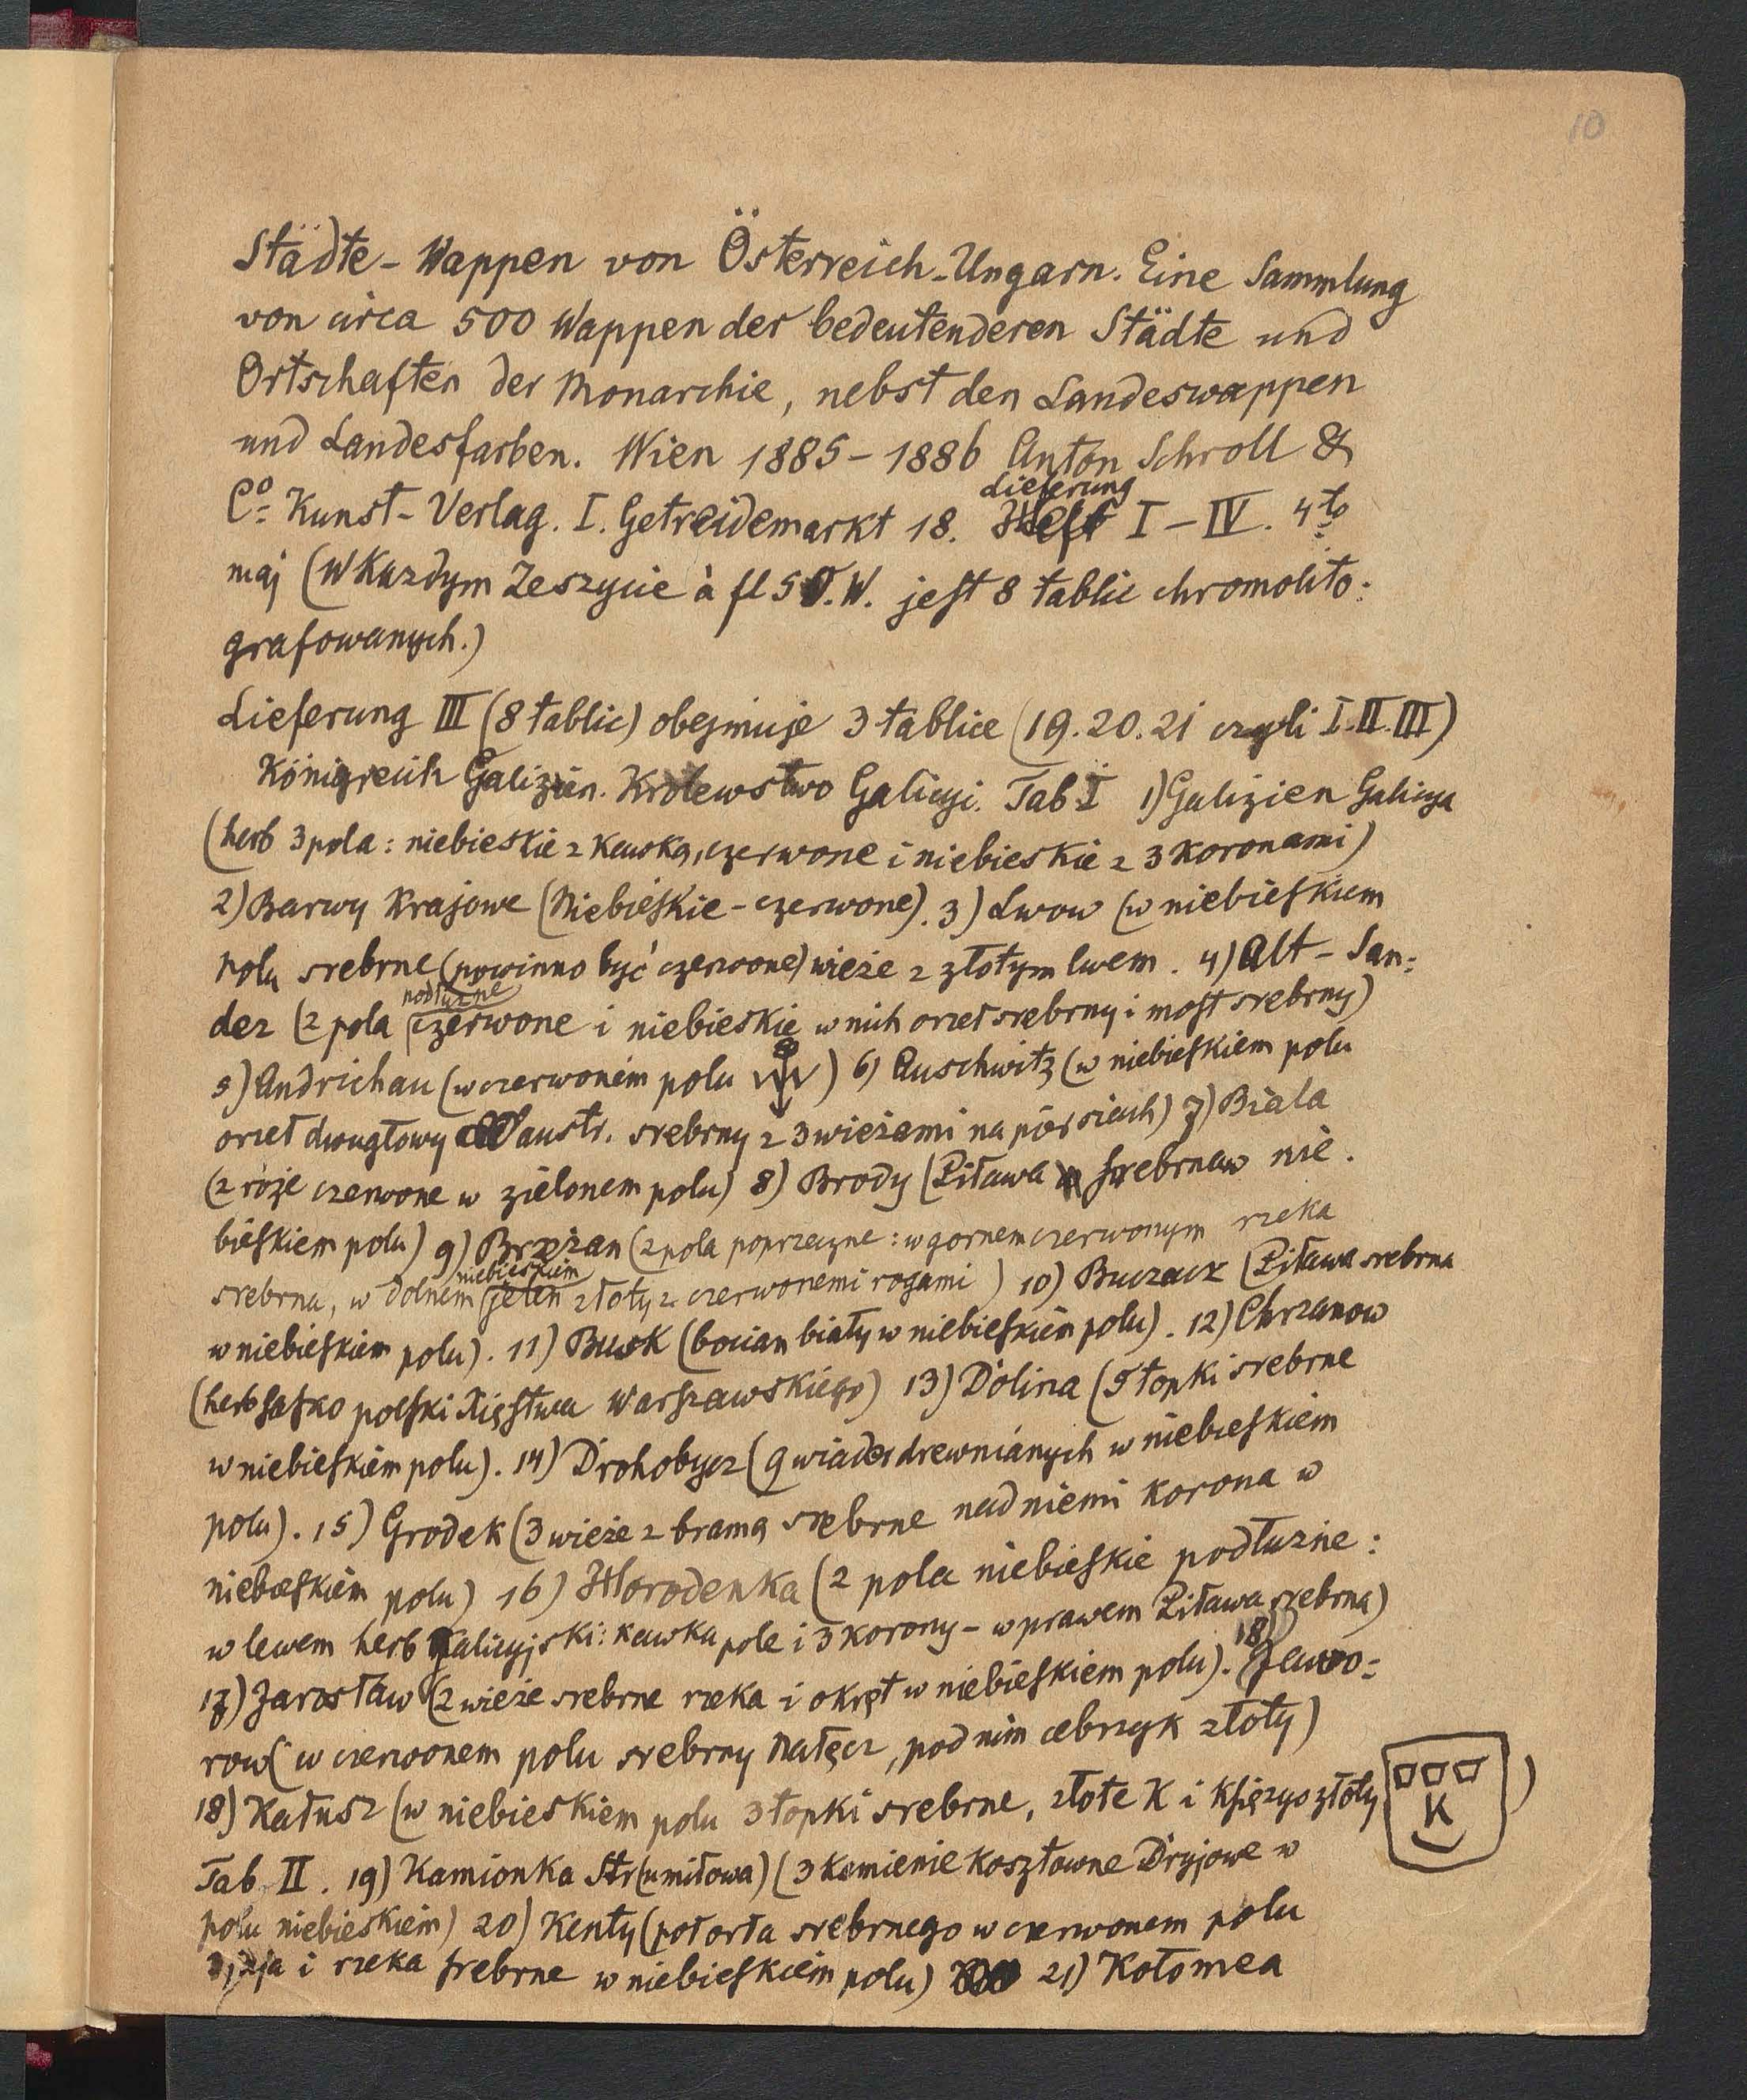 10
Städte-Wappen von Österreich-Ungarn. Eine Sammlung
von circa 500 Wappen der bedeutenderen Städte und
Ortschaften der Monarchie, nebst den Landeswappen
und Landesfarben. Wien 1885-1886 Anton Schroll &
Lieferung
Co Kunst-Verlag. I. Getreidemarkt 18. Heft I-IV. 4to
maj (W Kazdym Zeszycie à fl 5 Ö.W. jest 8 tablic chromolito=
grafowanych.)
Lieferung III (8 tablic) obejmuje 3 tablice (19.20.21 czyli I.II.III)
Königreich Galizien. Krolewstwo Galicyi. Tab I 1) Galizien Galicya
(herb 3 pola: niebieskie z Kawką, czerwone i niebieskie z 3 Koronami)
2) Barwy Krajowe (Niebieskie-czerwone). 3) Lwow (w niebieskiem
polu srebrne (powinno być czerwone) wieże z złotym lwem. 4) Alt-San=
podłużne
dez (2 pola czerwone i niebieskie w nich orzeł srebrny i most srebrny)
5) Andrichau (w czerwonem polu ) 6) Auschwitz (w niebieskiem polu
orzeł dwugłowy austr. srebrny z 3 wieżami na piersiach) 7) Biala
(2 róże czerwone w zielonem polu) 8) Brody (Piława srebrna w nie.
bieskiem polu) 9) Brzeżan (2 pola poprzeczne: w gornem czerwonym rzeka
niebieskiem
srebrna, w dolnem jeleń złoty z czerwonemi rogami) 10) Buczacz (Piława srebrna
w niebieskiem polu). 11) Busk (bocian biały w niebieskiem polu). 12) Chrzanow
(herb sasko polski Xięstwa Warszawskiego) 13) Dolina (5 topki srebrne
w niebieskiem polu). 14) Drohobycz (9 wiader drewnianych w niebieskiem
polu). 15) Grodek (3 wieże z bramą srebrne nad niemi korona w
niebieskiem polu) 16) Horodenka (2 pola niebieskie podłużne:
w lewem herb Galicyjski: kawka pole i 3 korony - w prawem Piława srebrna)
17) Jarosław (2 wieże srebrne rzeka i okręt w niebieskiem polu). 18) Jawo=
row (w czerwonem polu srebrny Nałęcz, pod nim cebrzyk złoty)
18) Kałusz (w niebieskiem polu 3 topki srebrne, złote K i Księżyc złoty
K )
Tab II. 19) Kamionka Str(umiłowa) (3 kamienie kosztowne Dryjowe w
polu niebieskiem) 20) Kenty (pół orła srebrnego w czerwonem polu
i rzeka srebrne w niebieskiem polu) 21) Kołomea